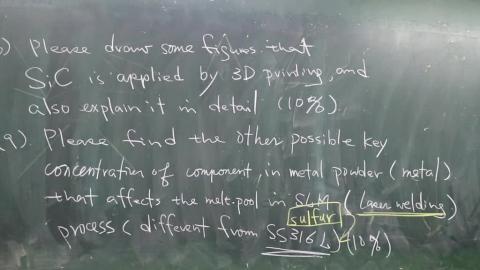 ) Please draw some figures that
SiC is applied by 3D printing, and
also explain it in detail (10%)
(9). Please find the other possible key
concentration of component, in metal powder (metal)
that affects the melt-pool in SLM (Laser welding)
sulfur
process (different from SS316L) (10%)